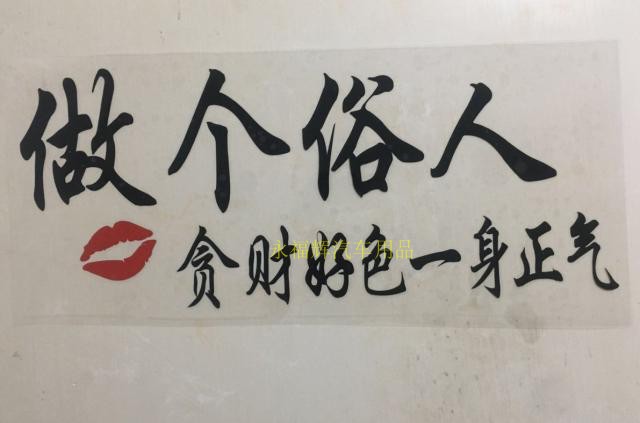 做个俗人
贪财好色一身正气
永福辉汽车用品